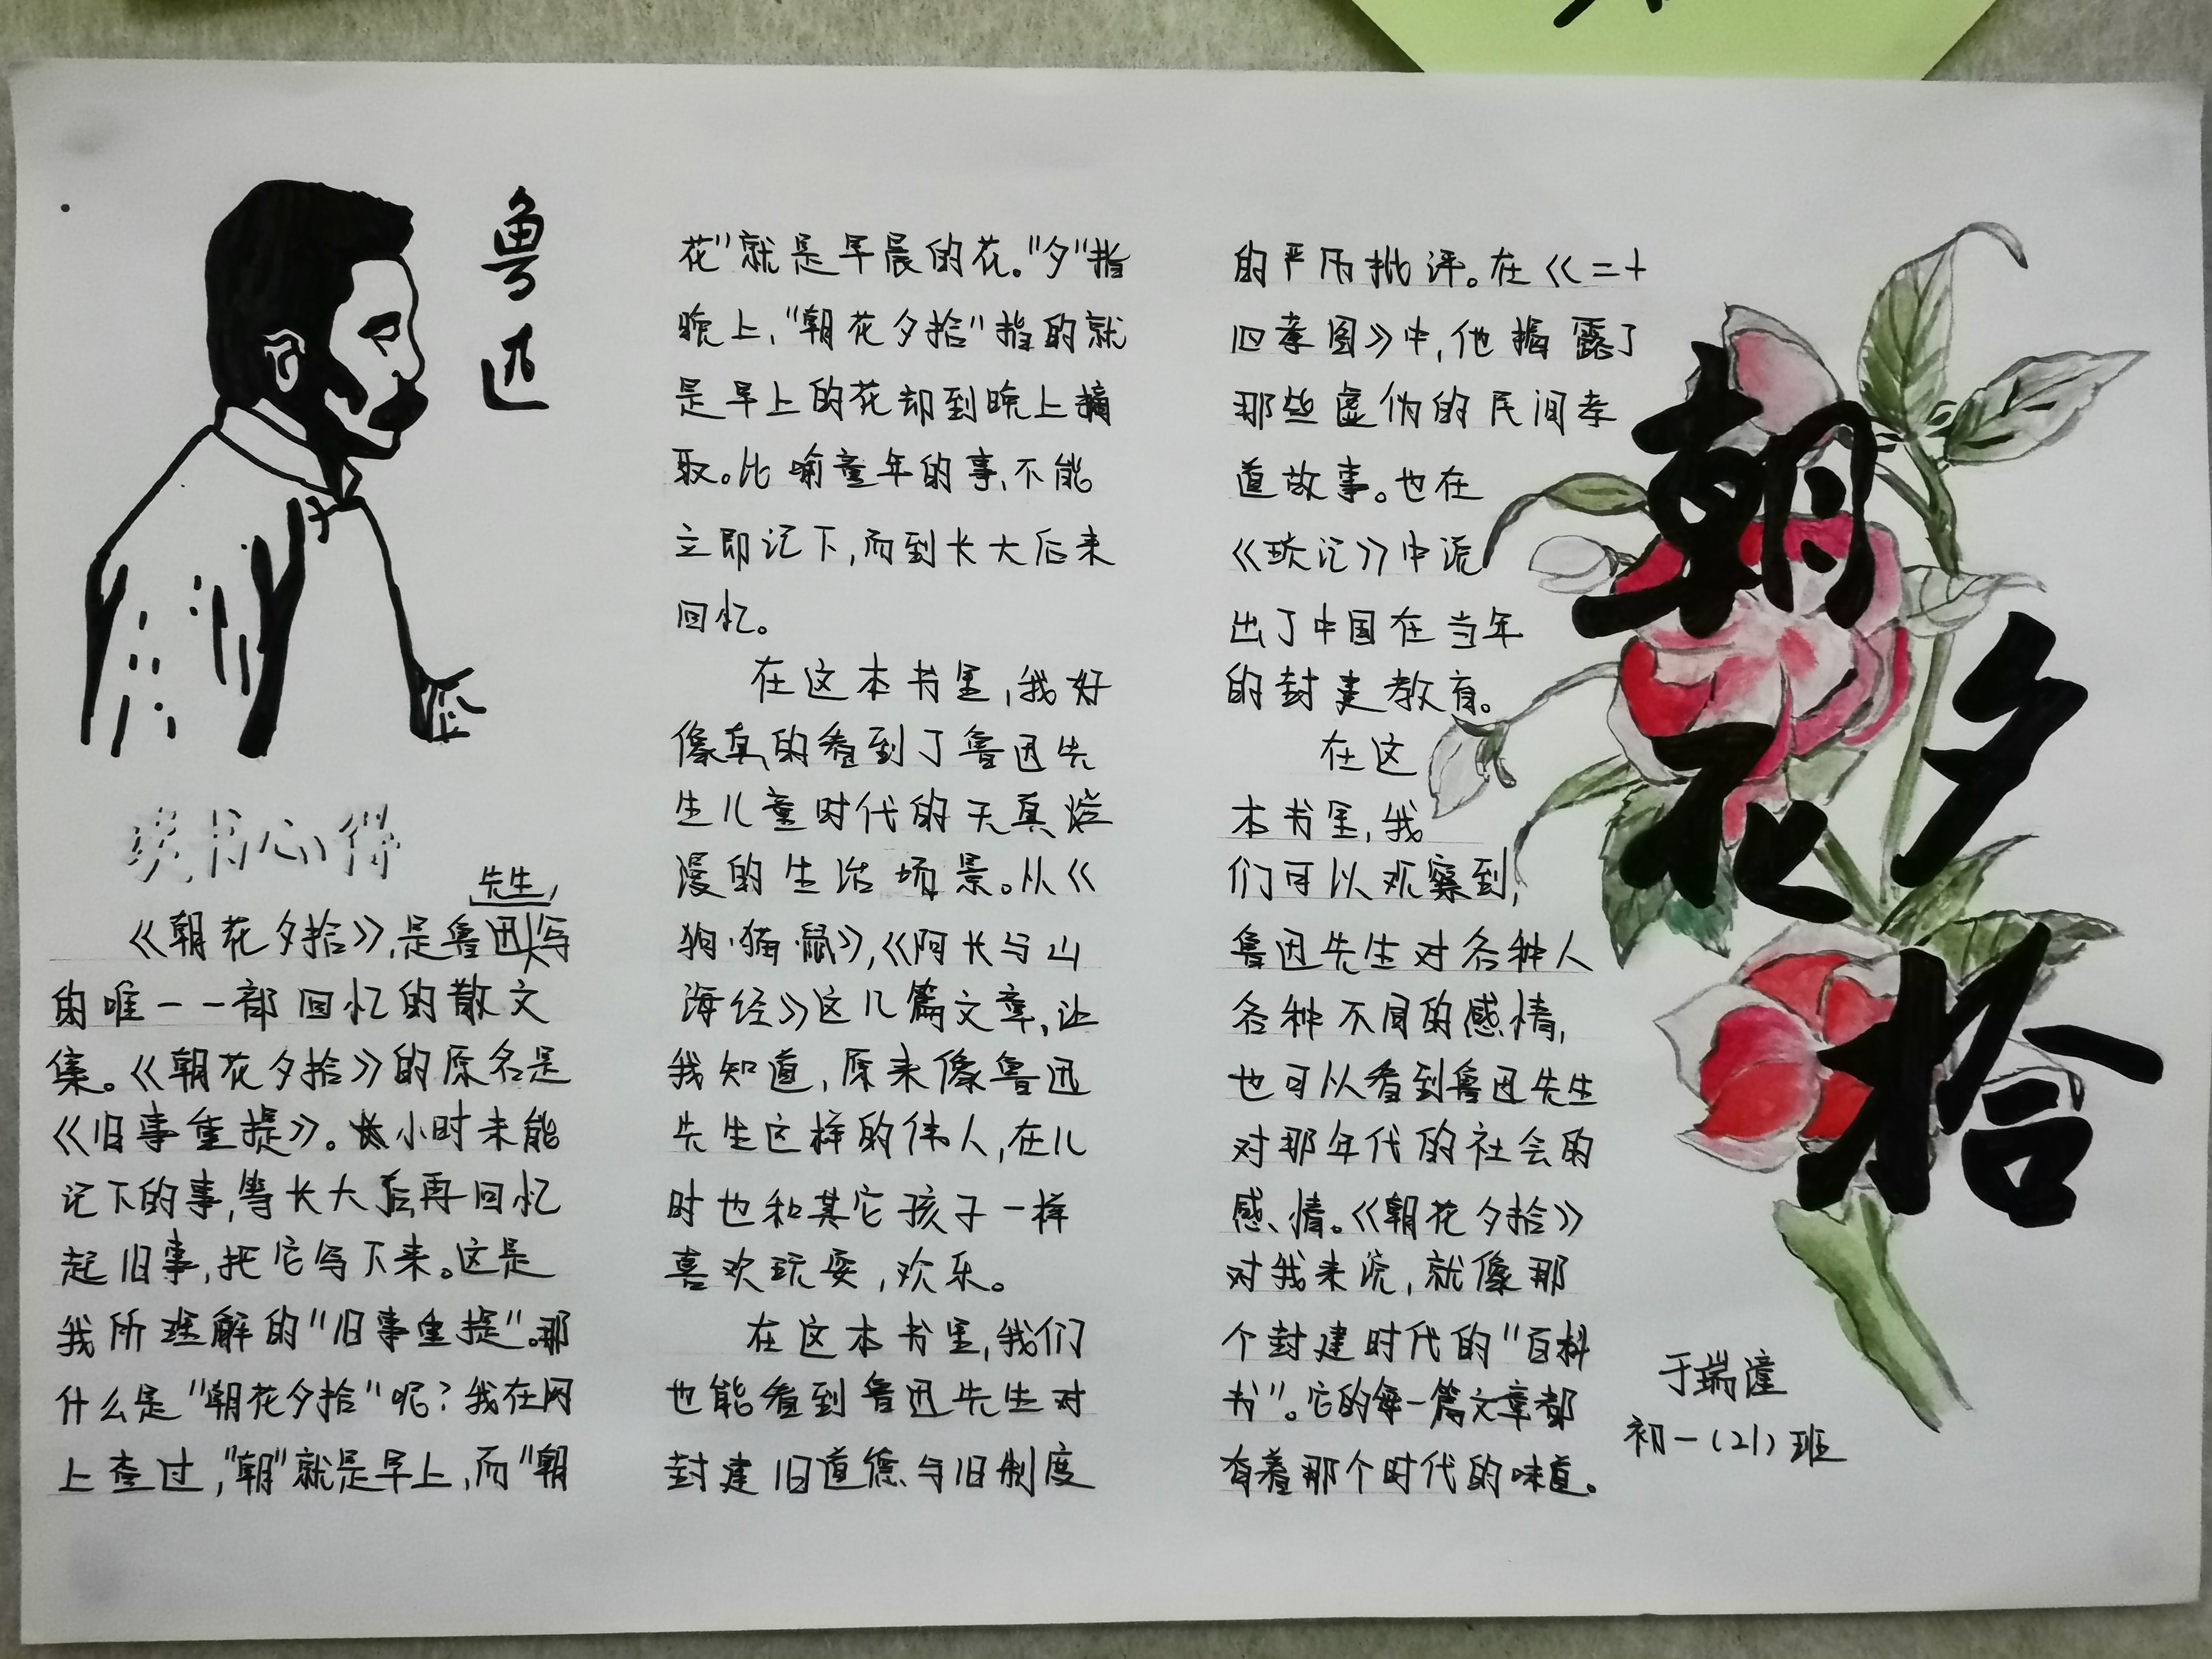 鲁迅
读书心得
先生,
《朝花夕拾》,是鲁迅写
的唯一一部回忆的散文
集。《朝花夕拾》的原名是
《旧事重提》。小时未能
记下的事,等长大后,再回忆
起旧事,把它写下来。这是
我所理解的"旧事重提"。那
什么是"朝花夕拾"呢?我在网
上查过,"朝"就是早上,而"朝
花"就是早晨的花。"夕"指
晚上,"朝花夕拾"指的就
是早上的花却到晚上摘
取。比喻童年的事,不能
立即记下,而到长大后来
回忆。
在这本书里,我好
像真的看到了鲁迅先
生儿童时代的天真烂
漫的生活场景。从《
狗·猫·鼠》,《阿长与山
海经》这几篇文章,让
我知道,原来像鲁迅
先生这样的伟人,在儿
时也和其它孩子一样
喜欢玩耍,欢乐。
在这本书里,我们
也能看到鲁迅先生对
封建旧道德与旧制度
的严厉批评。在《二十
四孝图》中,他揭露了
那些虚伪的民间孝
道故事。也在
《琐记》中流
出了中国在当年
的封建教育。
在这
本书里,我
们可以观察到,
鲁迅先生对各种人
各种不同的感情,
也可以看到鲁迅先生
对那年代的社会的
感情。《朝花夕拾》
对我来说,就像那
个封建时代的"百科
书"。它的每一篇文章都
有着那个时代的味道。
朝花
夕拾
于瑞潼
初一(21)班